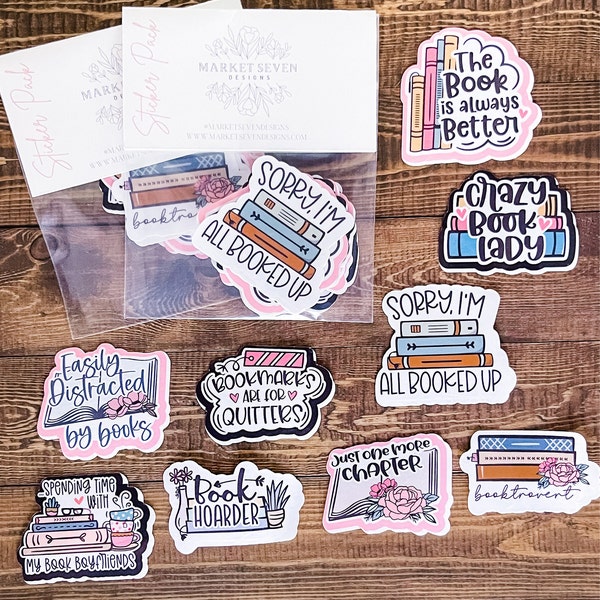 Sticker Pack
Sticker Pack
MARKET SEVEN
DESIGNS
#MARKETSEVENDESIGNS
WWW.MARKETSEVENDESIGNS.COM
booktrovert
SORRY, I'M
ALL BOOKED UP
The
Book
is always
Better
CRAZY
BOOK
LADY
SORRY, I'M
ALL BOOKED UP
Easily
Distracted
by books
BOOKMARKS
ARE FOR
QUITTERS
SPENDING TIME
WITH
MY BOOK BOYFRIENDS
Book
HOARDER
JUST ONE MORE
CHAPTER
booktrovert